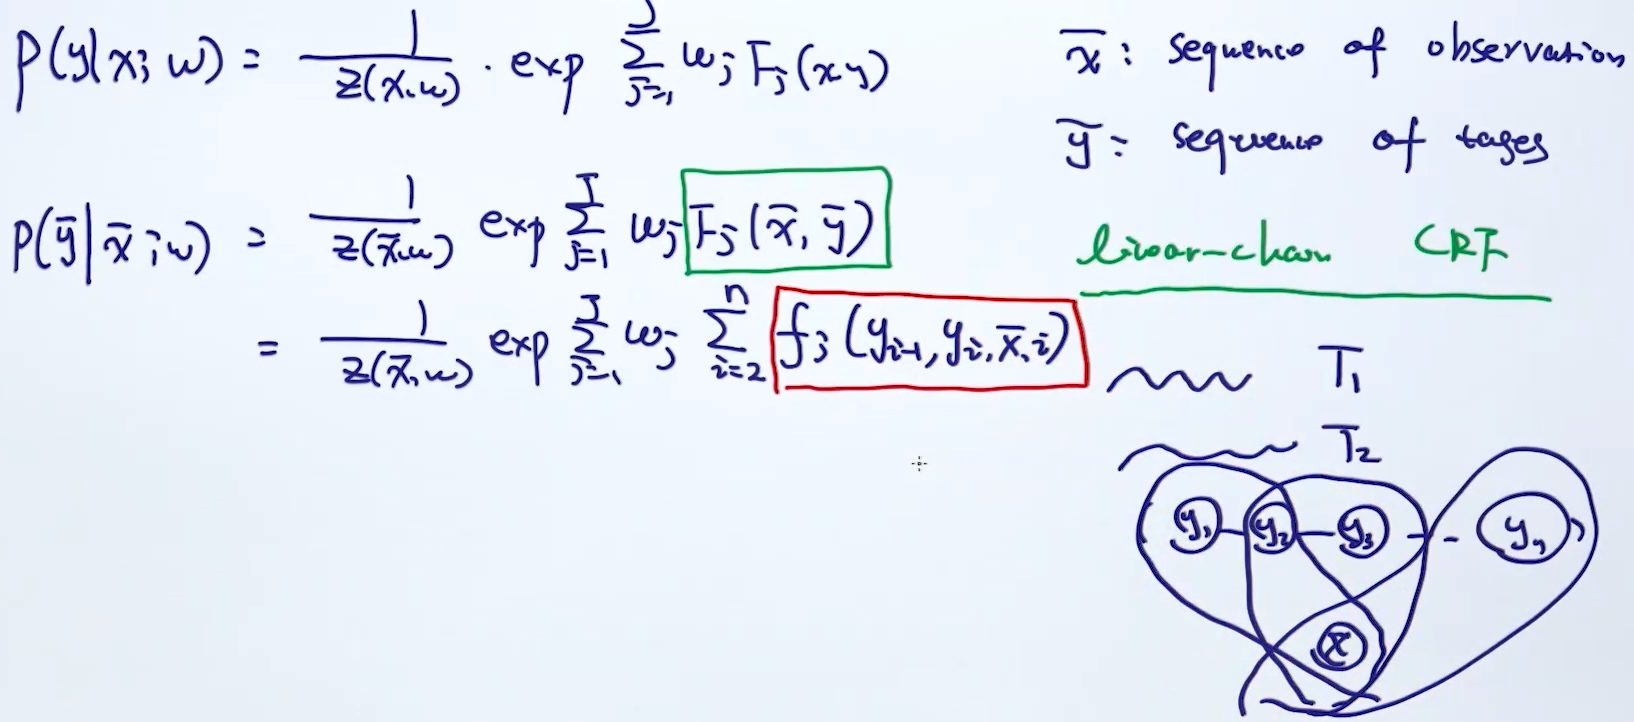 p(y|x; w) = 1/z(x,w) · exp ∑_{j=1}^{J} w_j F_j(x y)
x̄: sequence of observation
ȳ: sequence of tages
p(ȳ|x̄;w) = 1/z(x̄,w) exp ∑_{j=1}^{J} w_j F_j(x̄, ȳ)
linear-chain CRF
= 1/z(x̄,w) exp ∑_{j=1}^{J} w_j ∑_{i=2}^{n} f_j(y_{i-1}, y_i, x̄, i)
T₁
T₂
y₁ y₂ y₃ - yₙ
x̄